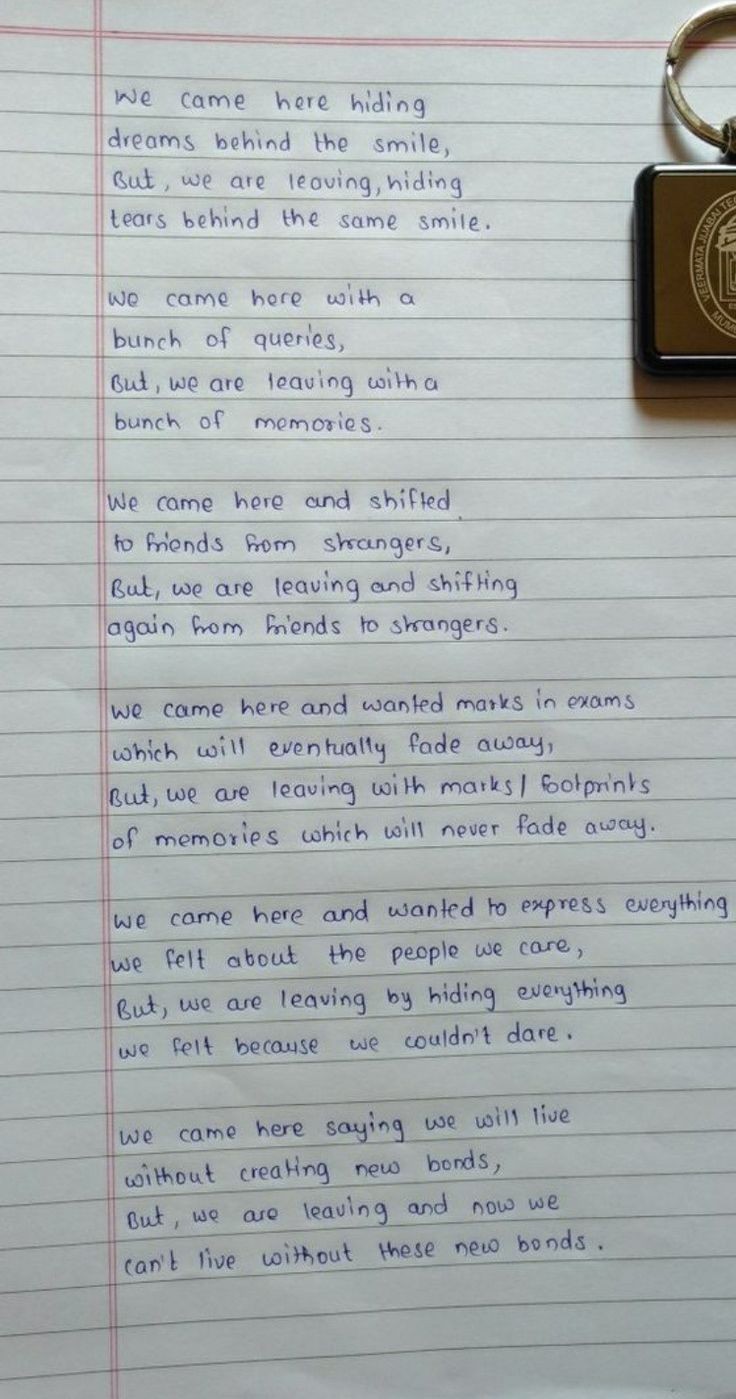 We came here hiding
dreams behind the smile,
But, we are leaving, hiding
tears behind the same smile.
We came here with a
bunch of queries,
But, we are leaving with a
bunch of memories.
We came here and shifted
to friends from strangers,
But, we are leaving and shifting
again from friends to strangers.
We came here and wanted marks in exams
which will eventually fade away,
But, we are leaving with marks/ footprints
of memories which will never fade away.
We came here and wanted to express everything
we felt about the people we care,
But, we are leaving by hiding everything
we felt because we couldn't dare.
We came here saying we will live
without creating new bonds,
But, we are leaving and now we
can't live without these new bonds.
VEERMATA JIJABAI